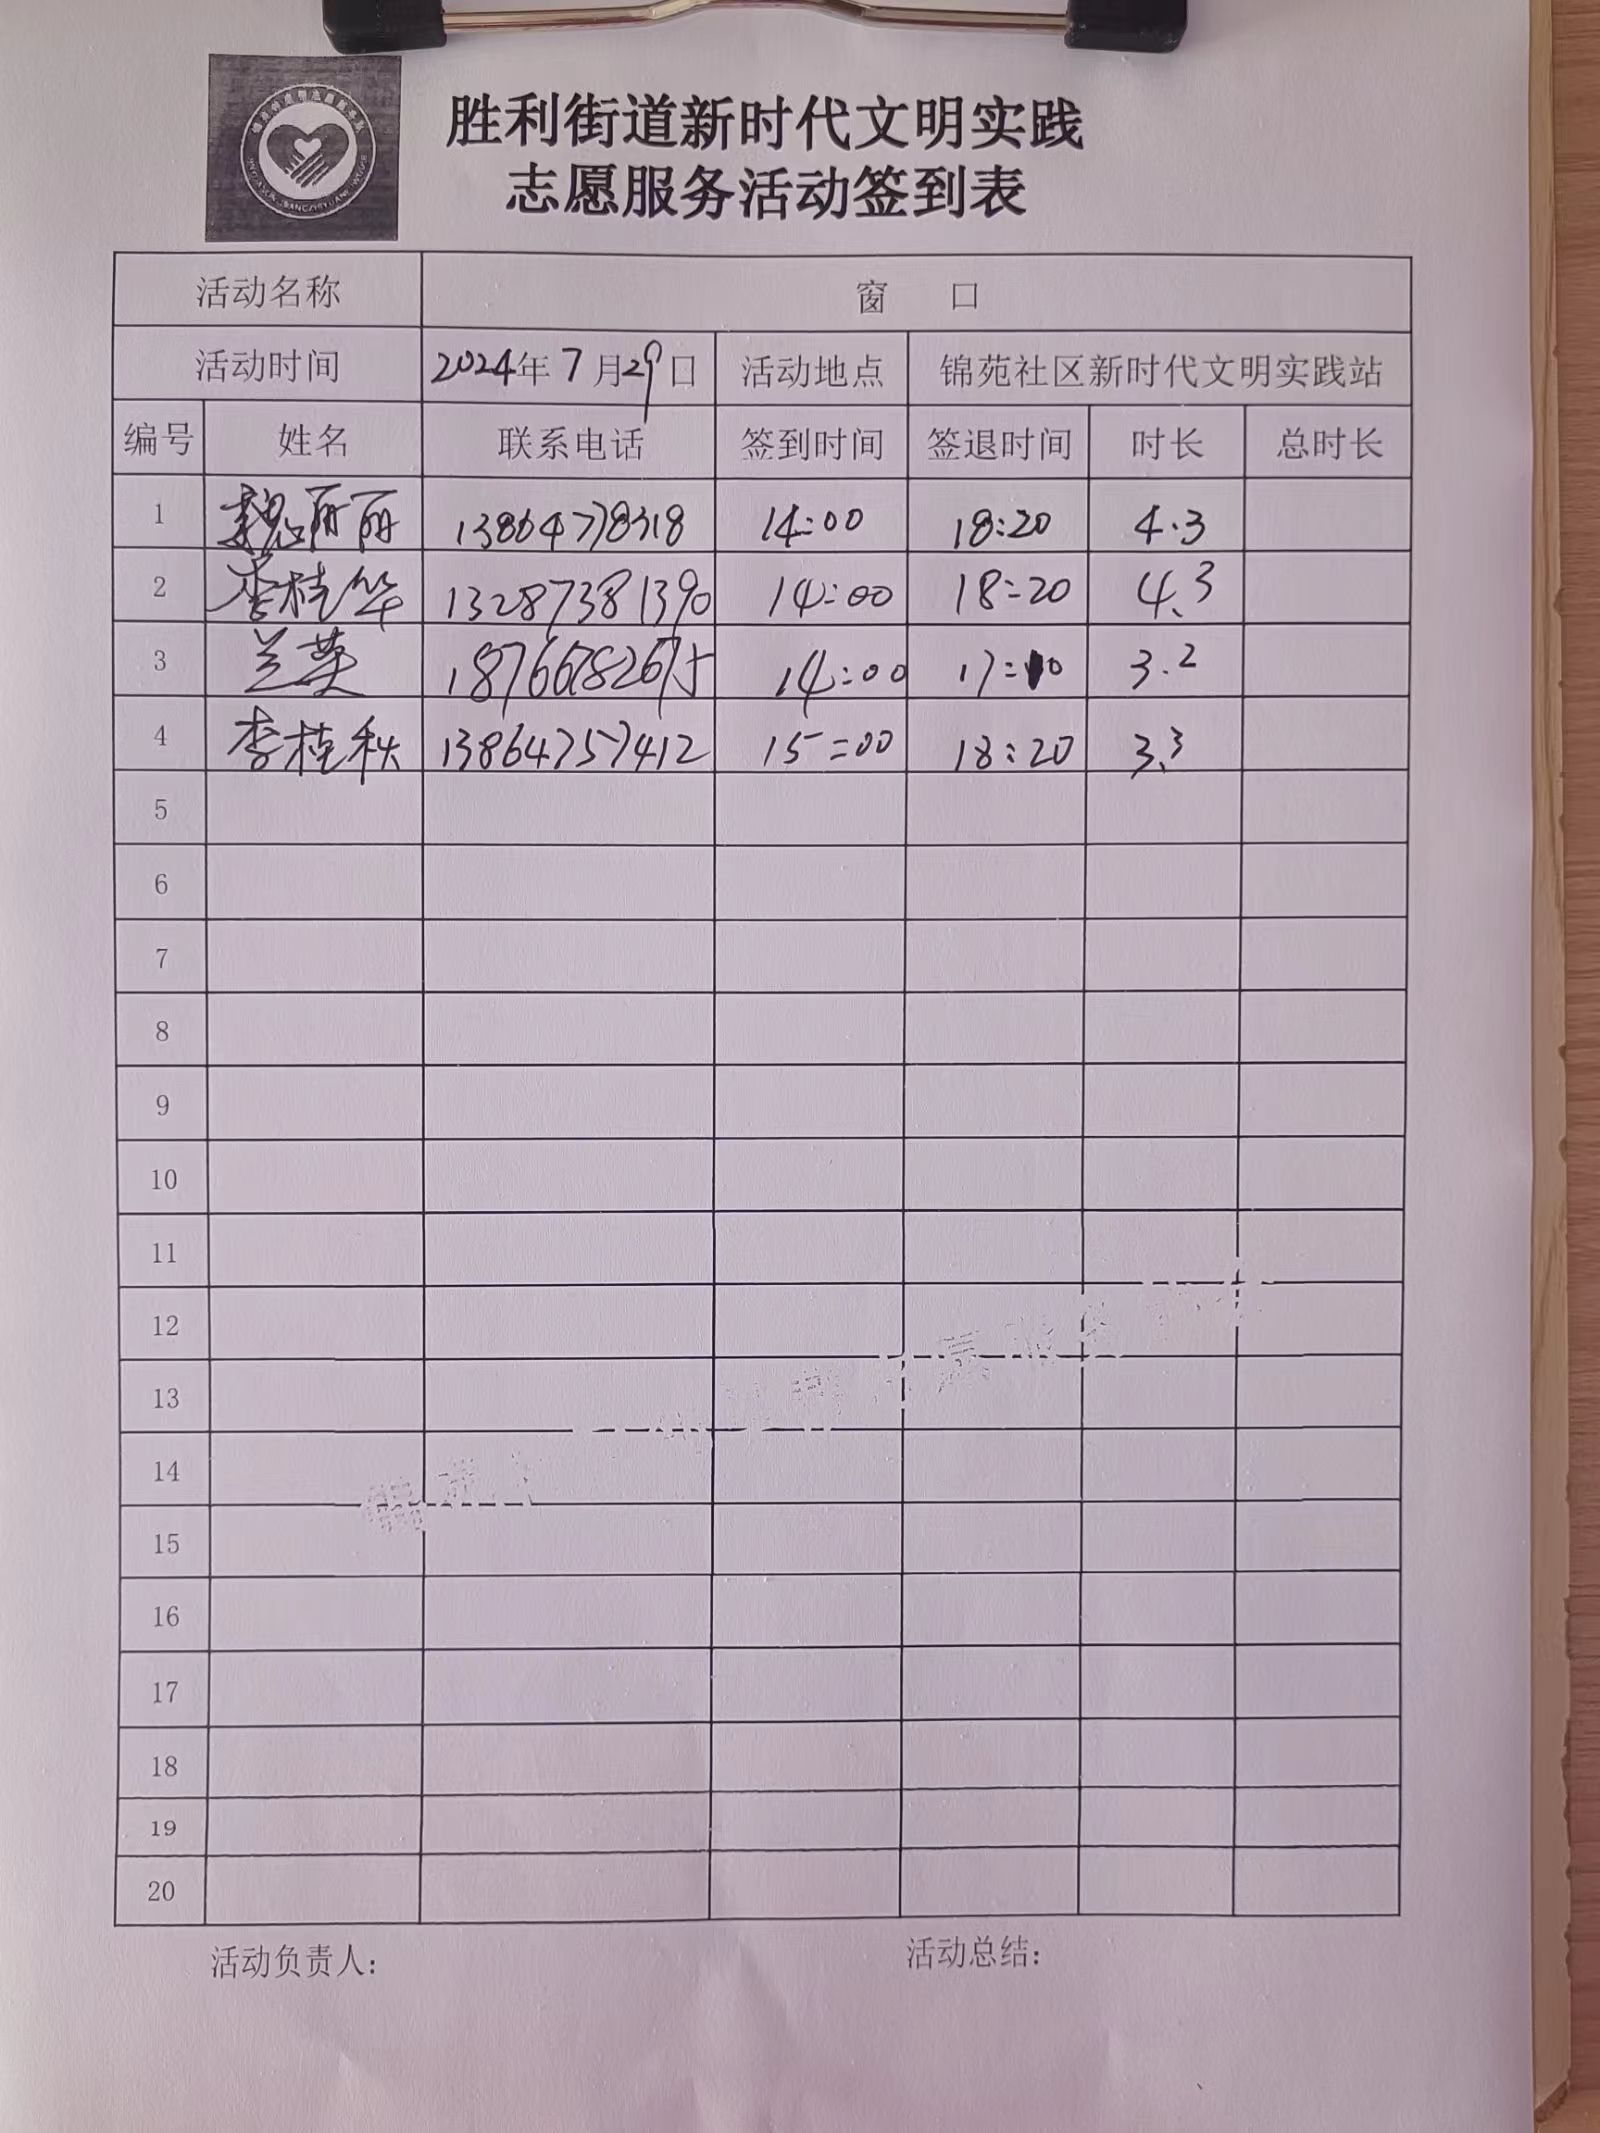 胜利街道新时代文明实践
志愿服务活动签到表
活动名称 窗 口
活动时间 2024年7月29日 活动地点 锦苑社区新时代文明实践站
编号 姓名 联系电话 签到时间 签退时间 时长 总时长
1 魏丽丽 13864778318 14:00 18:20 4.3
2 李桂华 13287381390 14:00 18:20 4.3
3 兰英 14:00 17:10 3.2
4 李桂秋 13864757412 15:00 18:20 3.3
5
6
7
8
9
10
11
12
13
14
15
16
17
18
19
20
活动负责人: 活动总结: